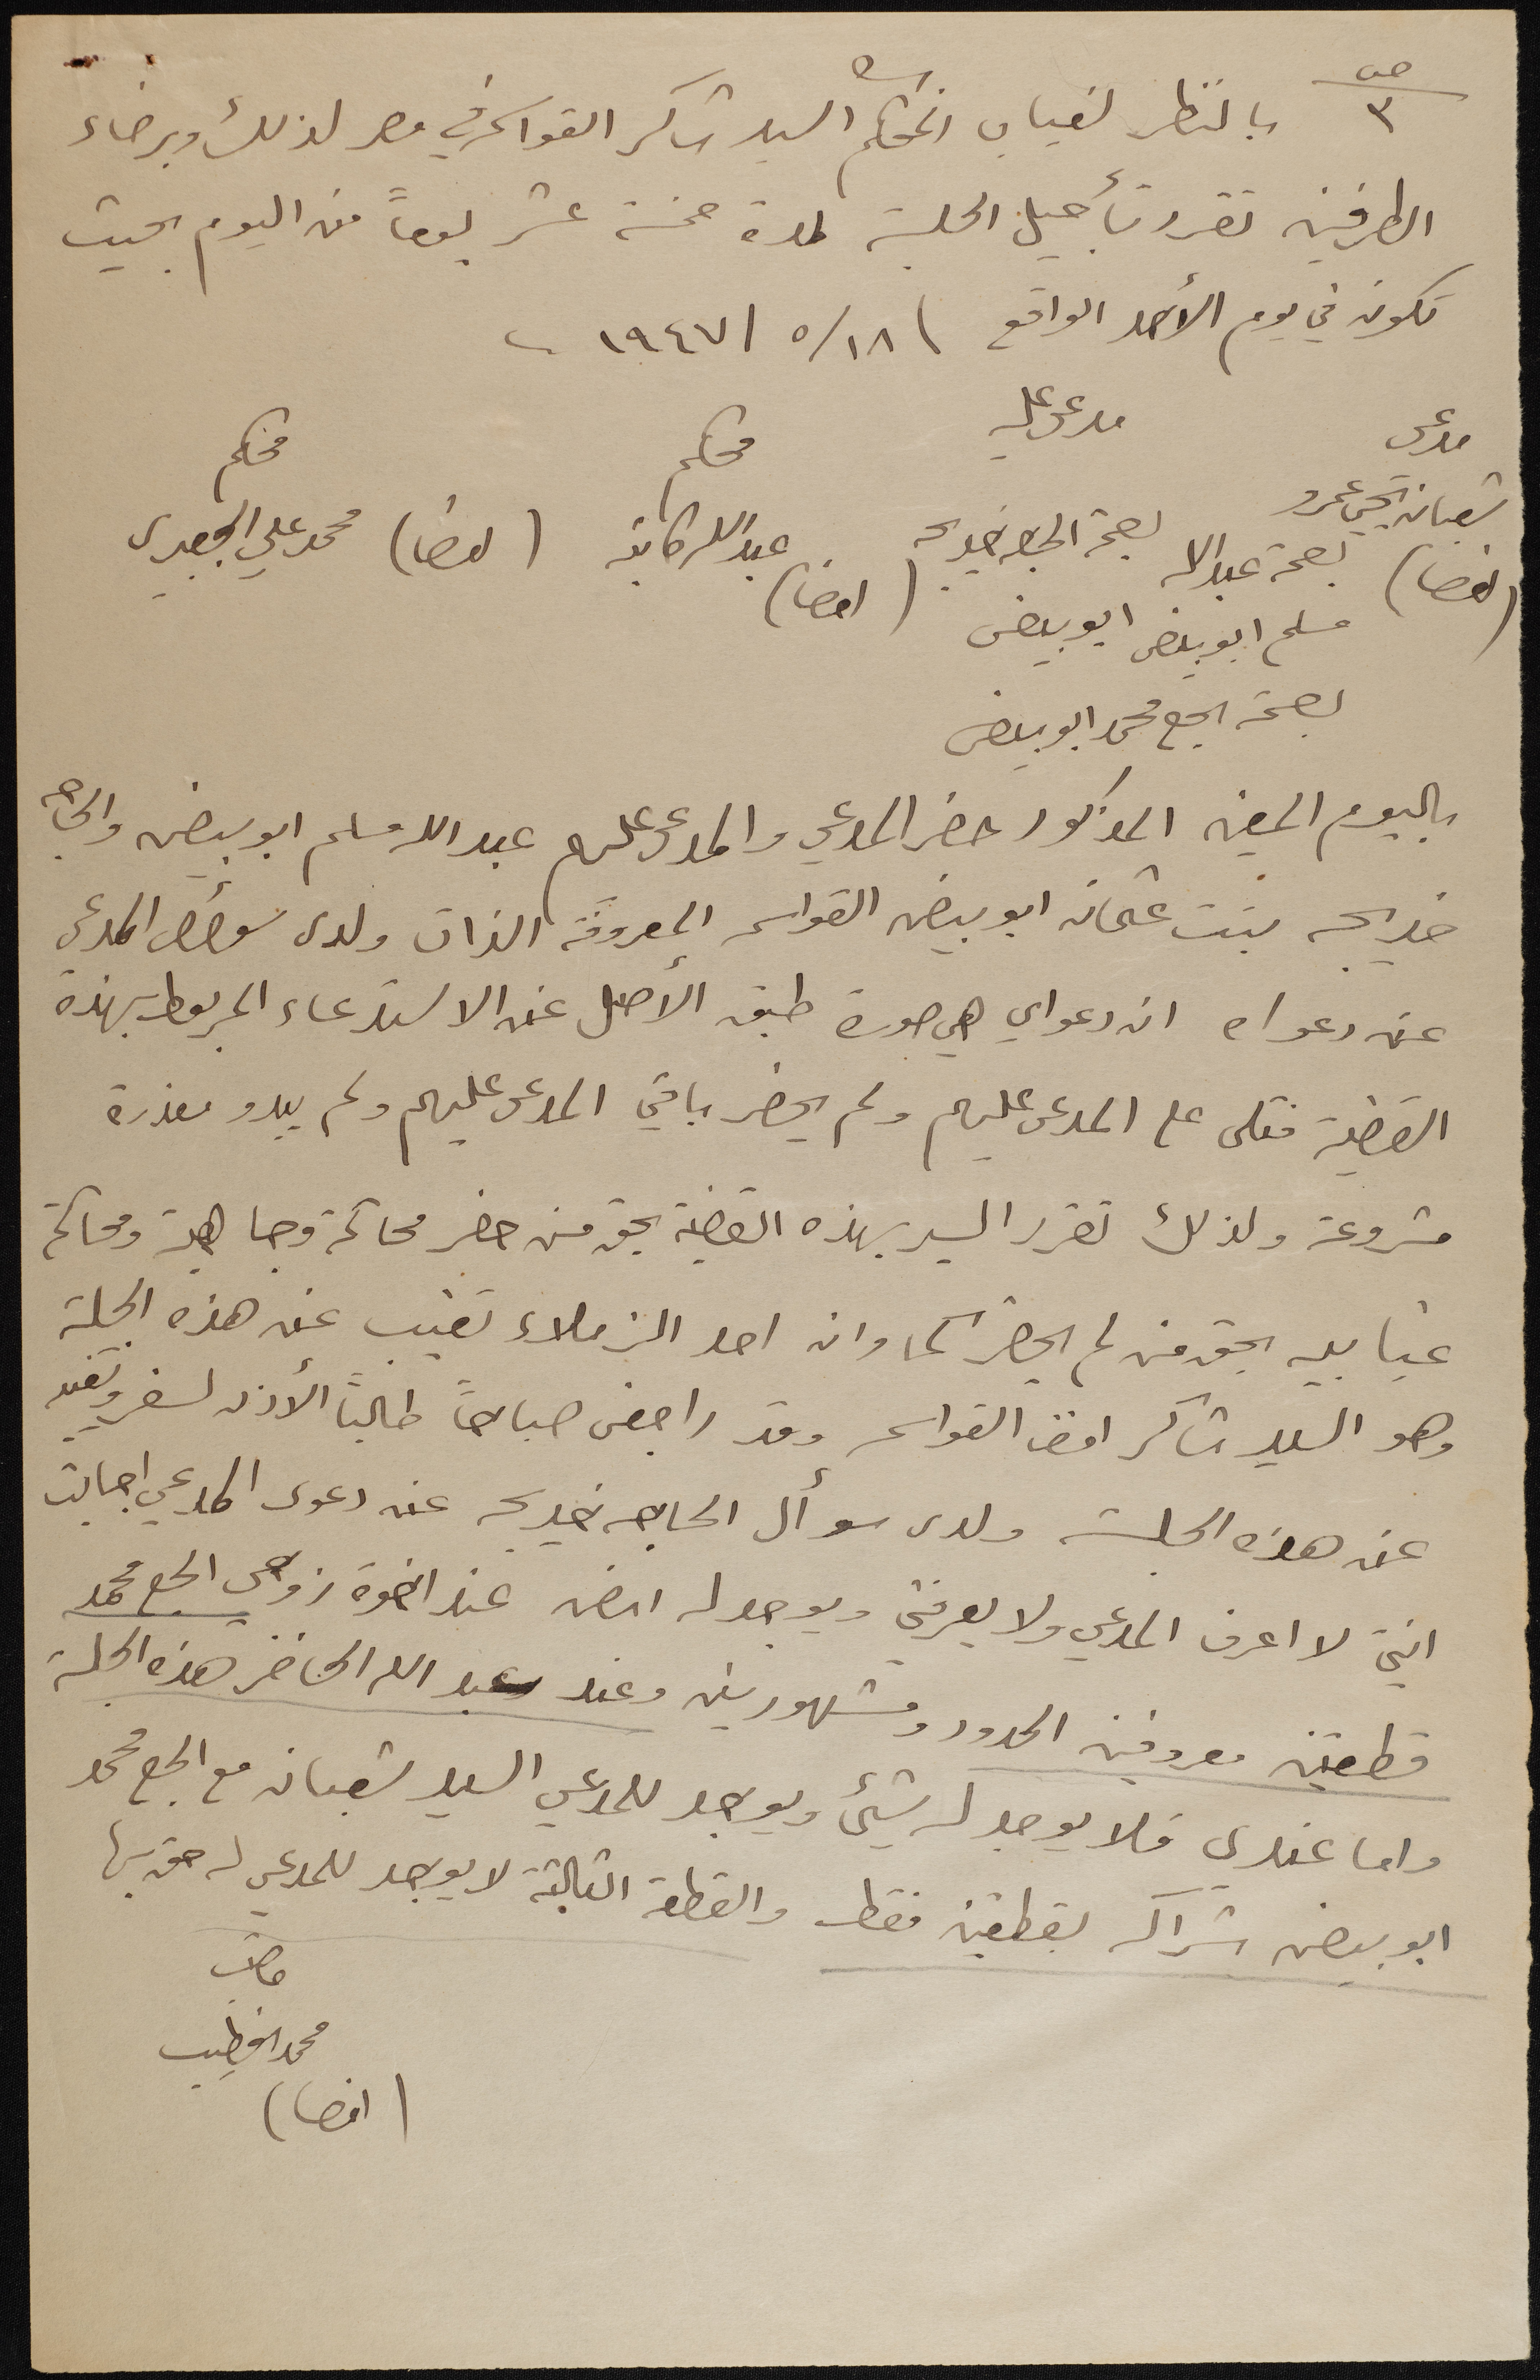 ص ٣
بالنظر لغياب المحكم السيد شاكر القواسمه في مصر لذلك وبرضاء
الطرفين تقرر تأجيل الجلسة لمدة خمسة عشر يوماً من اليوم بحيث
تكون في يوم الأحد الواقع ١٨/ ٥/ ١٩٤٧
مدعي مدعى عليه محكم محكم
شعبان يحيى عمرو بصمة عبدالله بصمة الحاجه خديجه عبدالله محمد علي الجعبري
(امضا) مسلم ابو بيض ابو بيض (امضا) (امضا)
بصمة الحج محمد ابو بيض
باليوم المعين المذكور حضر المدعي والمدعى عليهم عبد الله مسلم ابو بيض والحاجه
خديجه بنت عثمان ابو بيض القواسمه المعروفة الذات ولدى سؤال المدعي
عن دعواه ان دعواي هي صورة طبق الأصل عن الاستدعاء المربوط بهذه
القضية فتلى على المدعى عليهم ولم يحضر باقي المدعى عليهم ولم يبدو معذرة
مشروعة ولذلك تقرر السير بهذه القضية بحق من حضر محاكمة وجاهية ومحاكمة
غيابيه بحق من لم يحضر كما وان احد الزملاء تغيب عن هذه الجلسة
وهو السيد شاكر القواسمه وقد راجعني صباحاً طالباً الأذن لسفر وتغيبه
عن هذه الجلسة ولدى سوأل الحاجه خديجه عن دعوى المدعي اجابت
انني لا اعرف المدعي ولا يعرفني ويوجد له ارض عند اخوة زوجي الحج محمد
قطعتين معروفين الحدود ومشهورين وعند عبد الله الحاضر هذه الجلسة
واما عندي فلا يوجد له شيئ ويوجد للمدعي السيد شعبان مع الحج محمد
ابو بيض شراكه بقطعتين فقط والقطعة الثالثة لا يوجد للمدعي له حق بها
محمد الخطيب
(امضا)